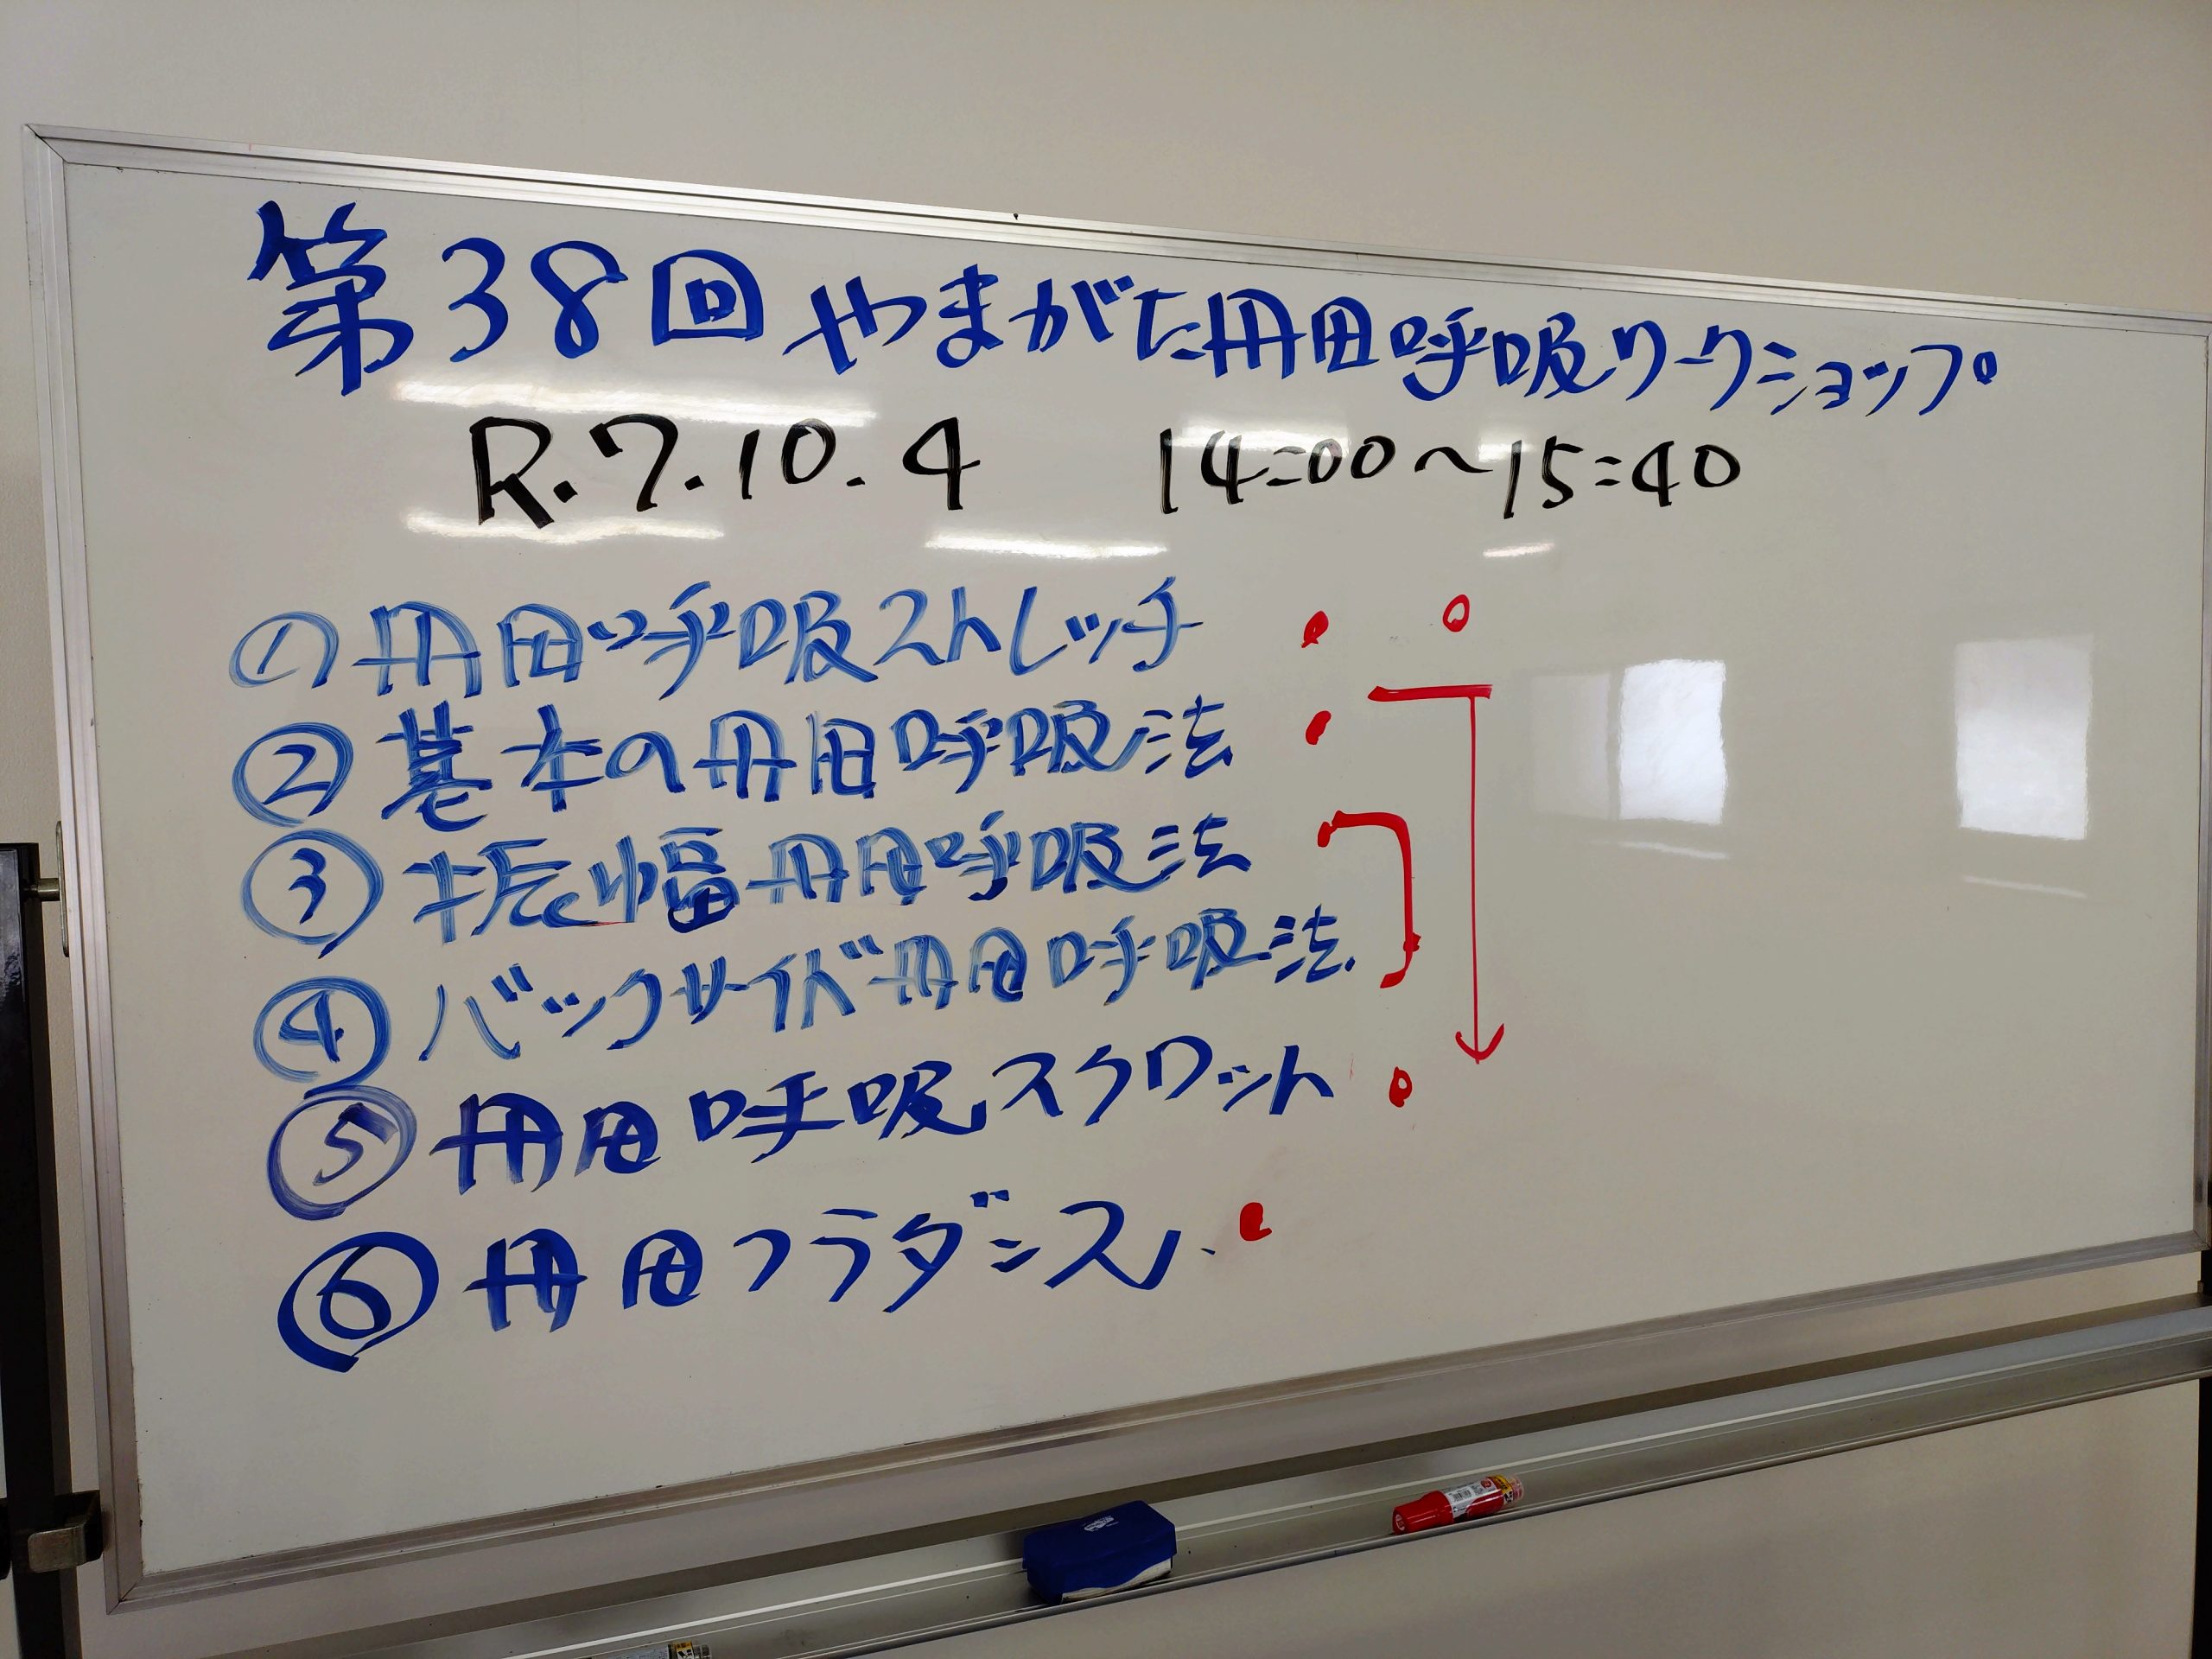 第38回やまがた丹田呼吸ワークショップ
R.7.10.4 14:00～15:40
①丹田呼吸ストレッチ
②基本の丹田呼吸法
③振幅丹田呼吸法
④バックサイド丹田呼吸法.
⑤丹田呼吸スクワット
⑥丹田フラダンス